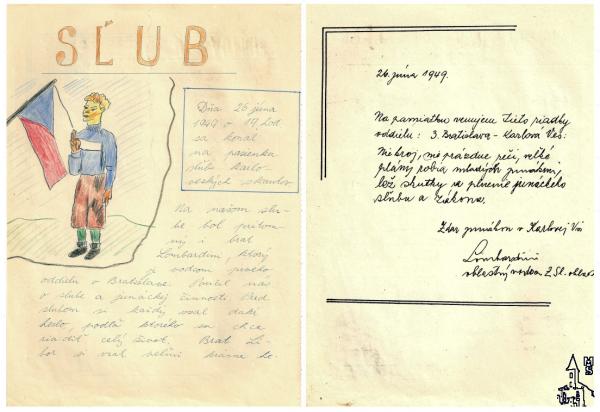 SĽUB
Dňa 26 júna
1949 o 19 hod
sa konal
na pasienku
sľub karlo-
veských skautov
Na našom slu-
be bol prítom-
ný i brat
Lombardini, ktorý
je vodcom prvého
oddielu v Bratislave. Poučil nás
o sľube a junáckej činnosti. Pred
sľubom si každý vzal dake
heslo, podľa ktorého sa chce
riadiť celý život. Brat Li-
bor si vzal veľmi krásne he-
26. júna 1949.
Na pamiatku venujem tieto riadky
oddielu: 3. Bratislava - Karlová Ves:
Nie kroj, nie prázdne reči, veľké
plány robia mladých junákmi,
lež skutky a plnenie junáckeho
sľubu a Zákona.
Zdar junákom v Karlovej Vsi
Lombardini
oblastný vodca Z. Sl. oblas